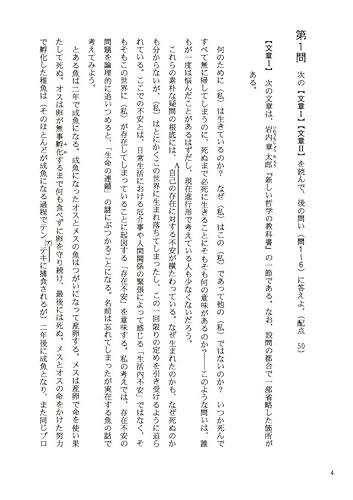 第1問　次の【文章Ⅰ】【文章Ⅱ】を読んで、後の問い（問1～6）に答えよ。（配点　50）
【文章Ⅰ】　次の文章は、岩内章太郎『新しい哲学の教科書』の一節である。なお、設問の都合で一部省略した箇所が
ある。
何のために〈私〉は生きているのか？　なぜ〈私〉はこの〈私〉であって他の〈私〉ではないのか？　いつか死んで
すべて無に帰してしまうのに、死ぬまで必死に生きることにそもそも何の意味があるのか？――このような問いは、誰
もが一度は悩んだことがあるはずだし、現在進行形で考えている人も少なくないだろう。
これらの素朴な疑問の根底には、A自己の存在に対する不安が横たわっている。なぜ生まれたのかも、なぜ死ぬのか
も分からないが、〈私〉はとにかくこの世界に生まれ落ちてしまったし、この一回限りの定めを引き受けるように迫ら
れている。ここでの不安とは、日常生活における厄介事や人間関係の緊張によって感じる「生活内不安」ではなく、そ
もそもこの世界に〈私〉が存在してしまっていることに起因する「存在不安」を意味する。私の考えでは、存在不安の
問題を論理的に追いつめると、「生命の連鎖」の謎にぶつかることになる。名前は忘れてしまったが実在する魚の話で
考えてみよう。
とある魚は二年で成魚になる。成魚になったオスとメスの魚はつがいになって産卵する。メスは産卵で命を使い果
たして死ぬ。オスは卵が無事孵化するまで何も食べずに卵を守り続け、最後には死ぬ。メスとオスの命をかけた努力
で孵化した稚魚は（そのほとんどが成魚になる過程でテン(ア)テキに捕食されるが）二年後に成魚となり、また同じプロ
4